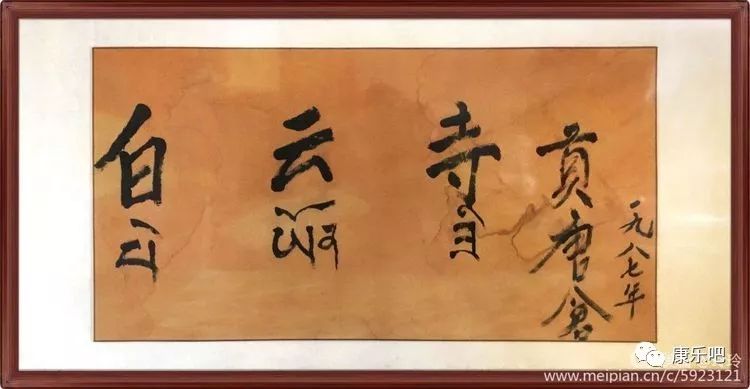 白云寺
貢唐倉
一九八七年
康乐吧
www.meipian.cn/c/5923121